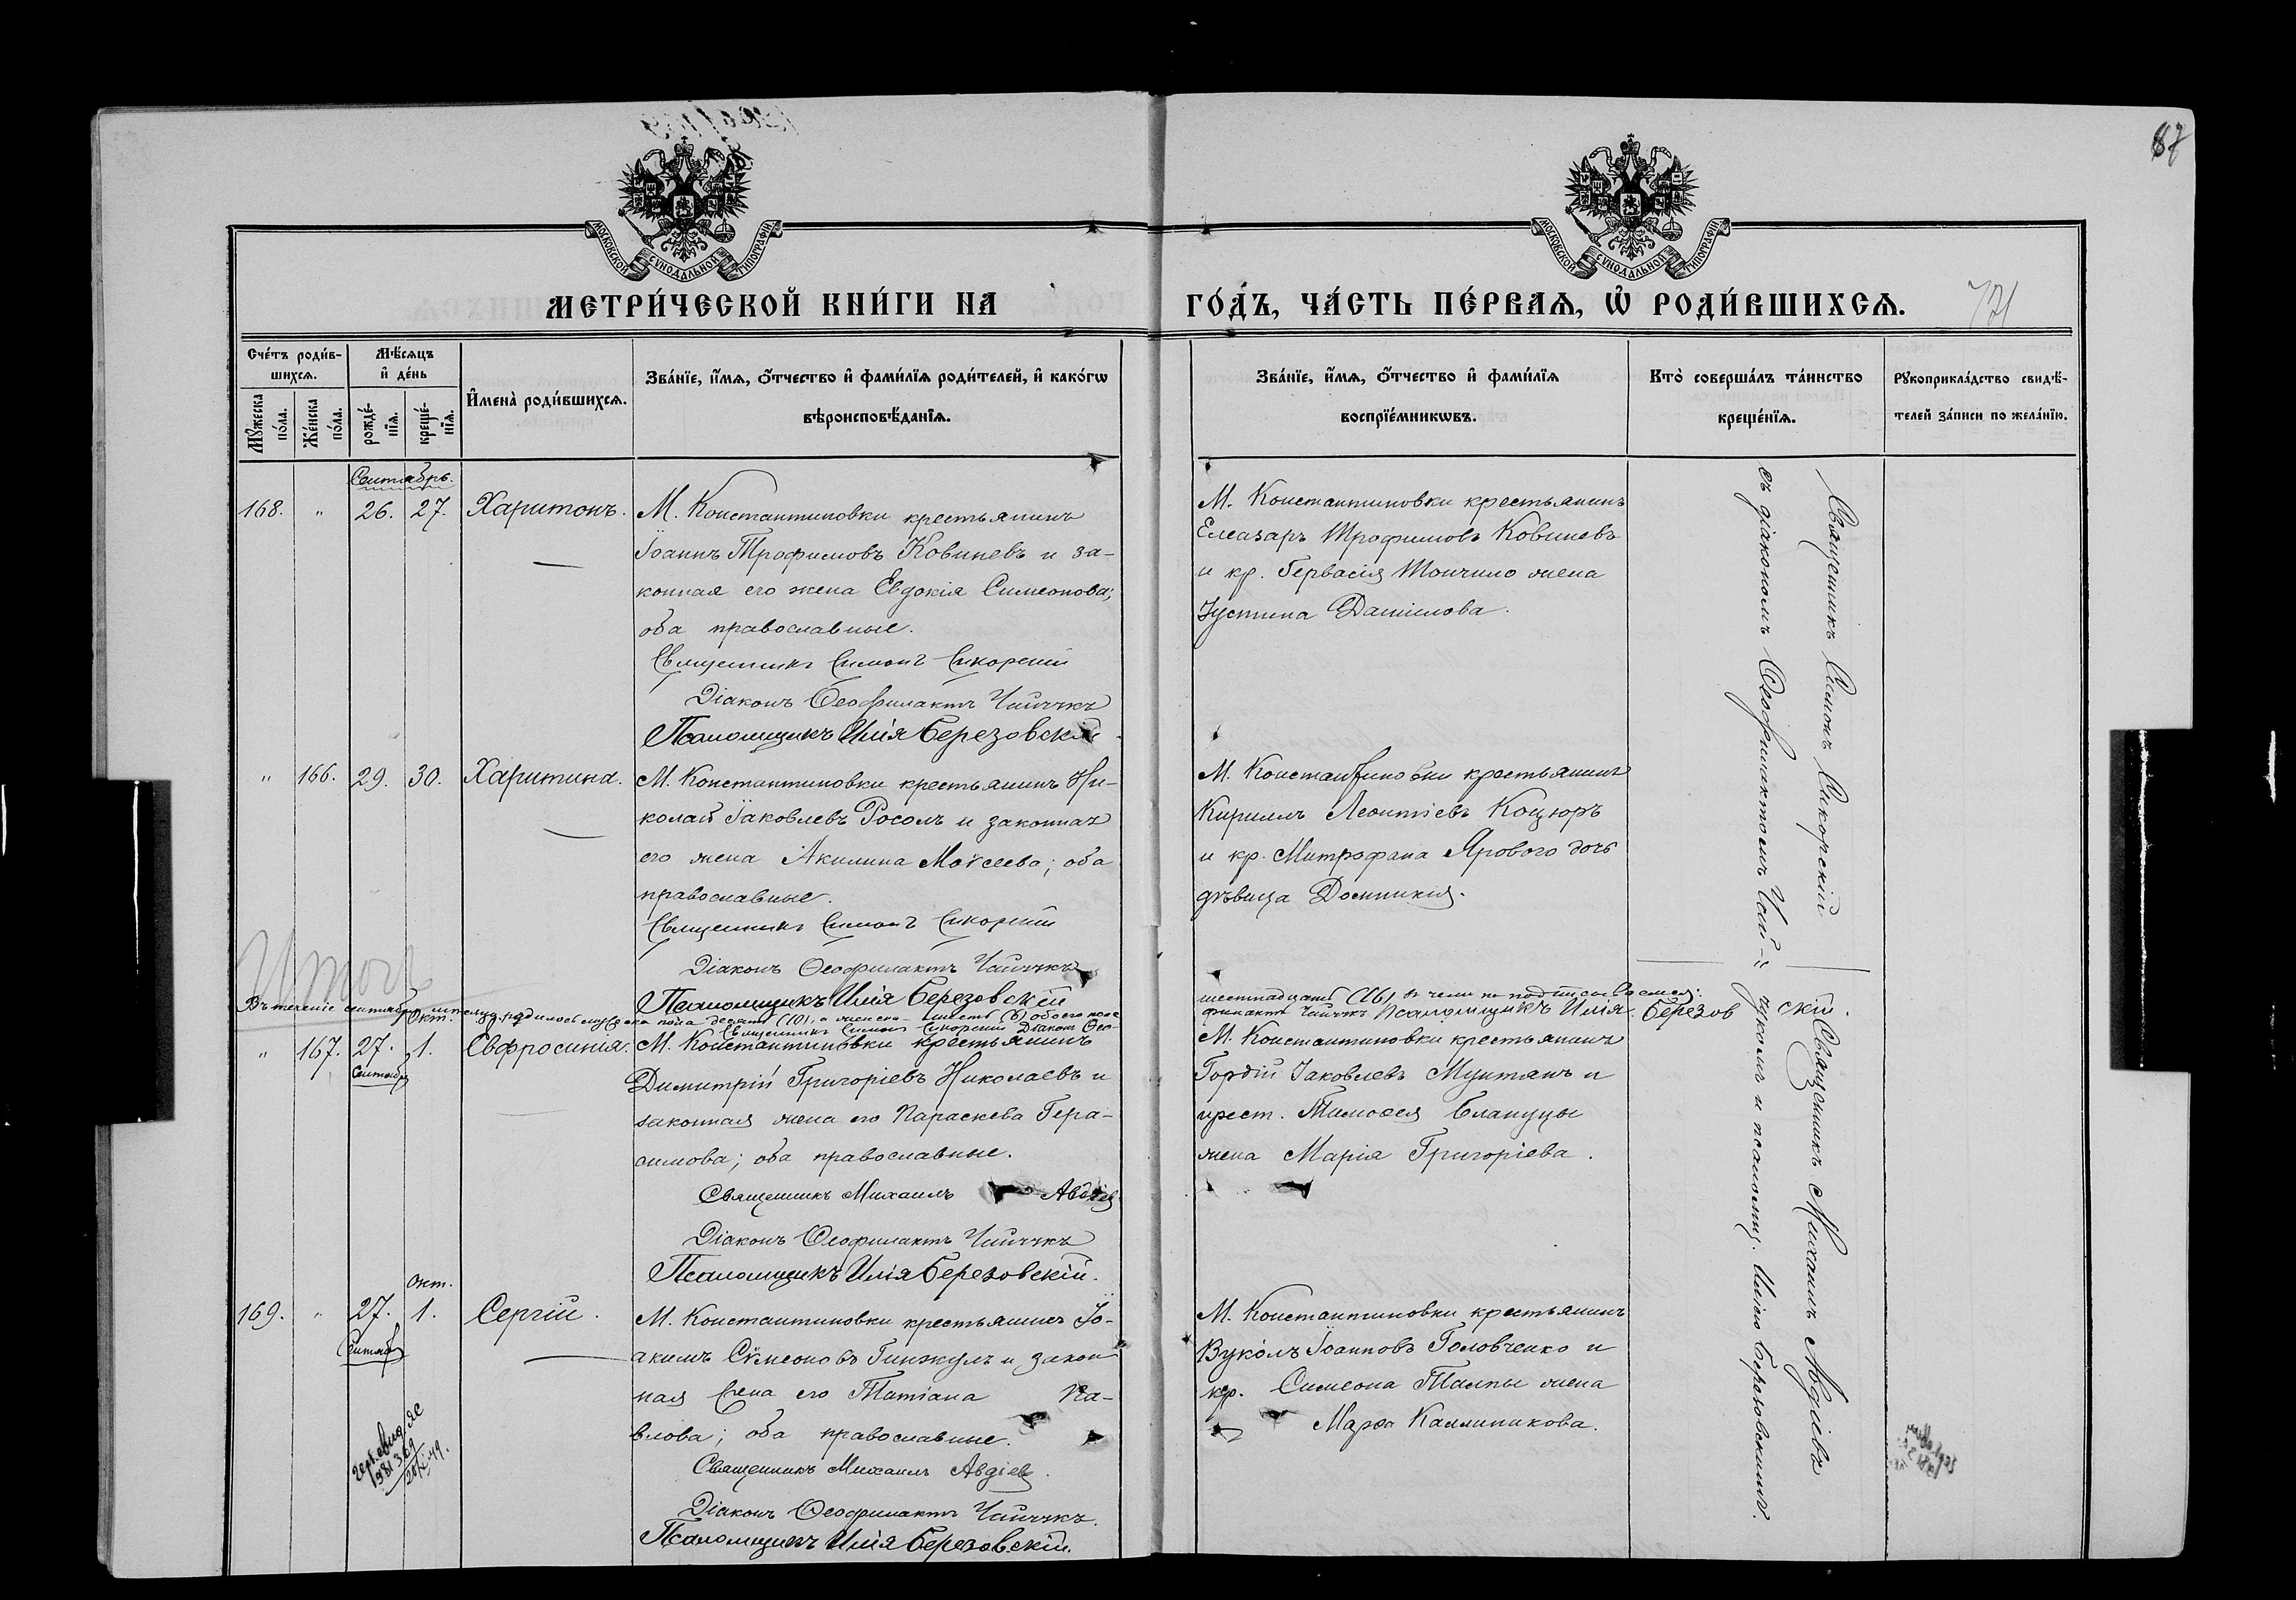 87
МОСКОВСКОЙ СУНОДАЛЬНОЙ ТИПОГРАФІИ
МОСКОВСКОЙ СУНОДАЛЬНОЙ ТИПОГРАФІИ
МЕТРИ́ЧЕСКОЙ КНИ́ГИ НА
ГО́ДЪ, ЧА́СТЬ ПЕ́РВАѦ, Ѡ҆ РОДИ́ВШИХСѦ.
721
Сче́тъ роди́в-
шихсѧ.
Мѣ́сѧцъ
и҆ де́нь
Мꙋ́жеска
по́ла.
Же́нска
по́ла.
рожде́-
нїѧ.
креще́-
нїѧ.
И҆мена̀ роди́вшихсѧ.
Зва́нїе, и҆́мѧ, ѻ҆́тчество и҆ фами́лїѧ роди́телей, и҆ како́гѡ
вѣроисповѣ́данїѧ.
Зва́нїе, и҆́мѧ, ѻ҆́тчество и҆ фами́лїѧ
воспрїе́мникѡвъ.
Кто̀ соверша́лъ та́инство
креще́нїѧ.
Рꙋкоприкла́дство свидѣ́-
телей за́писи по жела́нїю.
Сентябрь.
168. " 26. 27. Харитонъ.
М. Константиновки крестьянинъ
Іоаннъ Трофимовъ Ковиневъ и за-
конная его жена Евдокія Симеонова;
оба православные.
Священникъ Симонъ Сикорскій
Діаконъ Ѳеофилактъ Чайчукъ
Псаломщикъ Илія Березовскій
М. Константиновки крестьянинъ
Елеазаръ Трофимовъ Ковиневъ
и кр. Гервасія Тончило жена
Іустина Даніилова.
Священникъ Симонъ Сикорскій
съ діакономъ Ѳеофилактомъ Чай-
" 166. 29. 30. Харитина.
М. Константиновки крестьянинъ Ни-
колай Іаковлевъ Росолъ и законная
его жена Акилина Моѵсеева; оба
православные.
Священникъ Симонъ Сикорскій
Діаконъ Ѳеофилактъ Чайчукъ
Псаломщикъ Илія Березовскій
М. Константиновки крестьянинъ
Кириллъ Леонтіевъ Коцюръ
и кр. Митрофана Ярового дочь
дѣвица Домникія.
Итогъ
Въ теченіе сентября мѣсяца родилось мужеска пола десять (10), а женска - шесть (6) обоего пола
шестнадцать (16) въ чемъ и подписываемся:
Священникъ Симонъ Сикорскій Діаконъ Ѳео-
филактъ Чайчукъ Псаломщикъ Илія Березовскій.
Окт.
" 167. 27. 1. Евфросинія.
Сентябр
М. Константиновки крестьянинъ
Димитрій Григоріевъ Николаевъ и
законная жена его Параскева Гера-
симова; оба православные.
Священникъ Михаилъ Авдіев
Діаконъ Ѳеофилактъ Чайчукъ
Псаломщикъ Илія Березовскій.
М. Константиновки крестьянинъ
Гордій Іаковлевъ Мунтянъ и
крест. Тимоѳея Блануцы
жена Марія Григоріева.
Священникъ Михаилъ Авдіевъ
чукомъ и псаломщ. Иліею Березовскимъ.
Окт.
169. " 27. 1. Сергій.
Сентябр
М. Константиновки крестьянинъ Іо-
акимъ Сѵмеоновъ Гинжулъ и закон
ная жена его Татіана Па-
влова; оба православные.
Священникъ Михаилъ Авдіев.
Діаконъ Ѳеофилактъ Чайчукъ.
Псаломщикъ Илія Березовскій.
М. Константиновки крестьянинъ
Вуколъ Іоанновъ Головченко и
кр. Симеона Тампы жена
Марѳа Каллиникова.